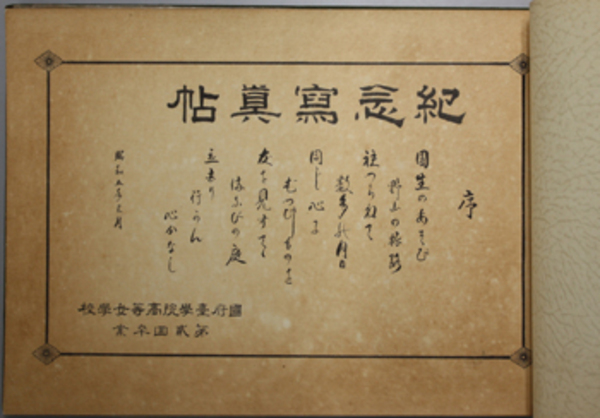 紀念寫眞帖
序
園生のあそび
野上の旅路
袖つらねて
数多の月日
同じ心に
むつびしものを
友を見すてゝ
まなびの庭
立去り
行らん
心かなし
昭和五年三月
國府臺學院高等女學校
第貳回卒業